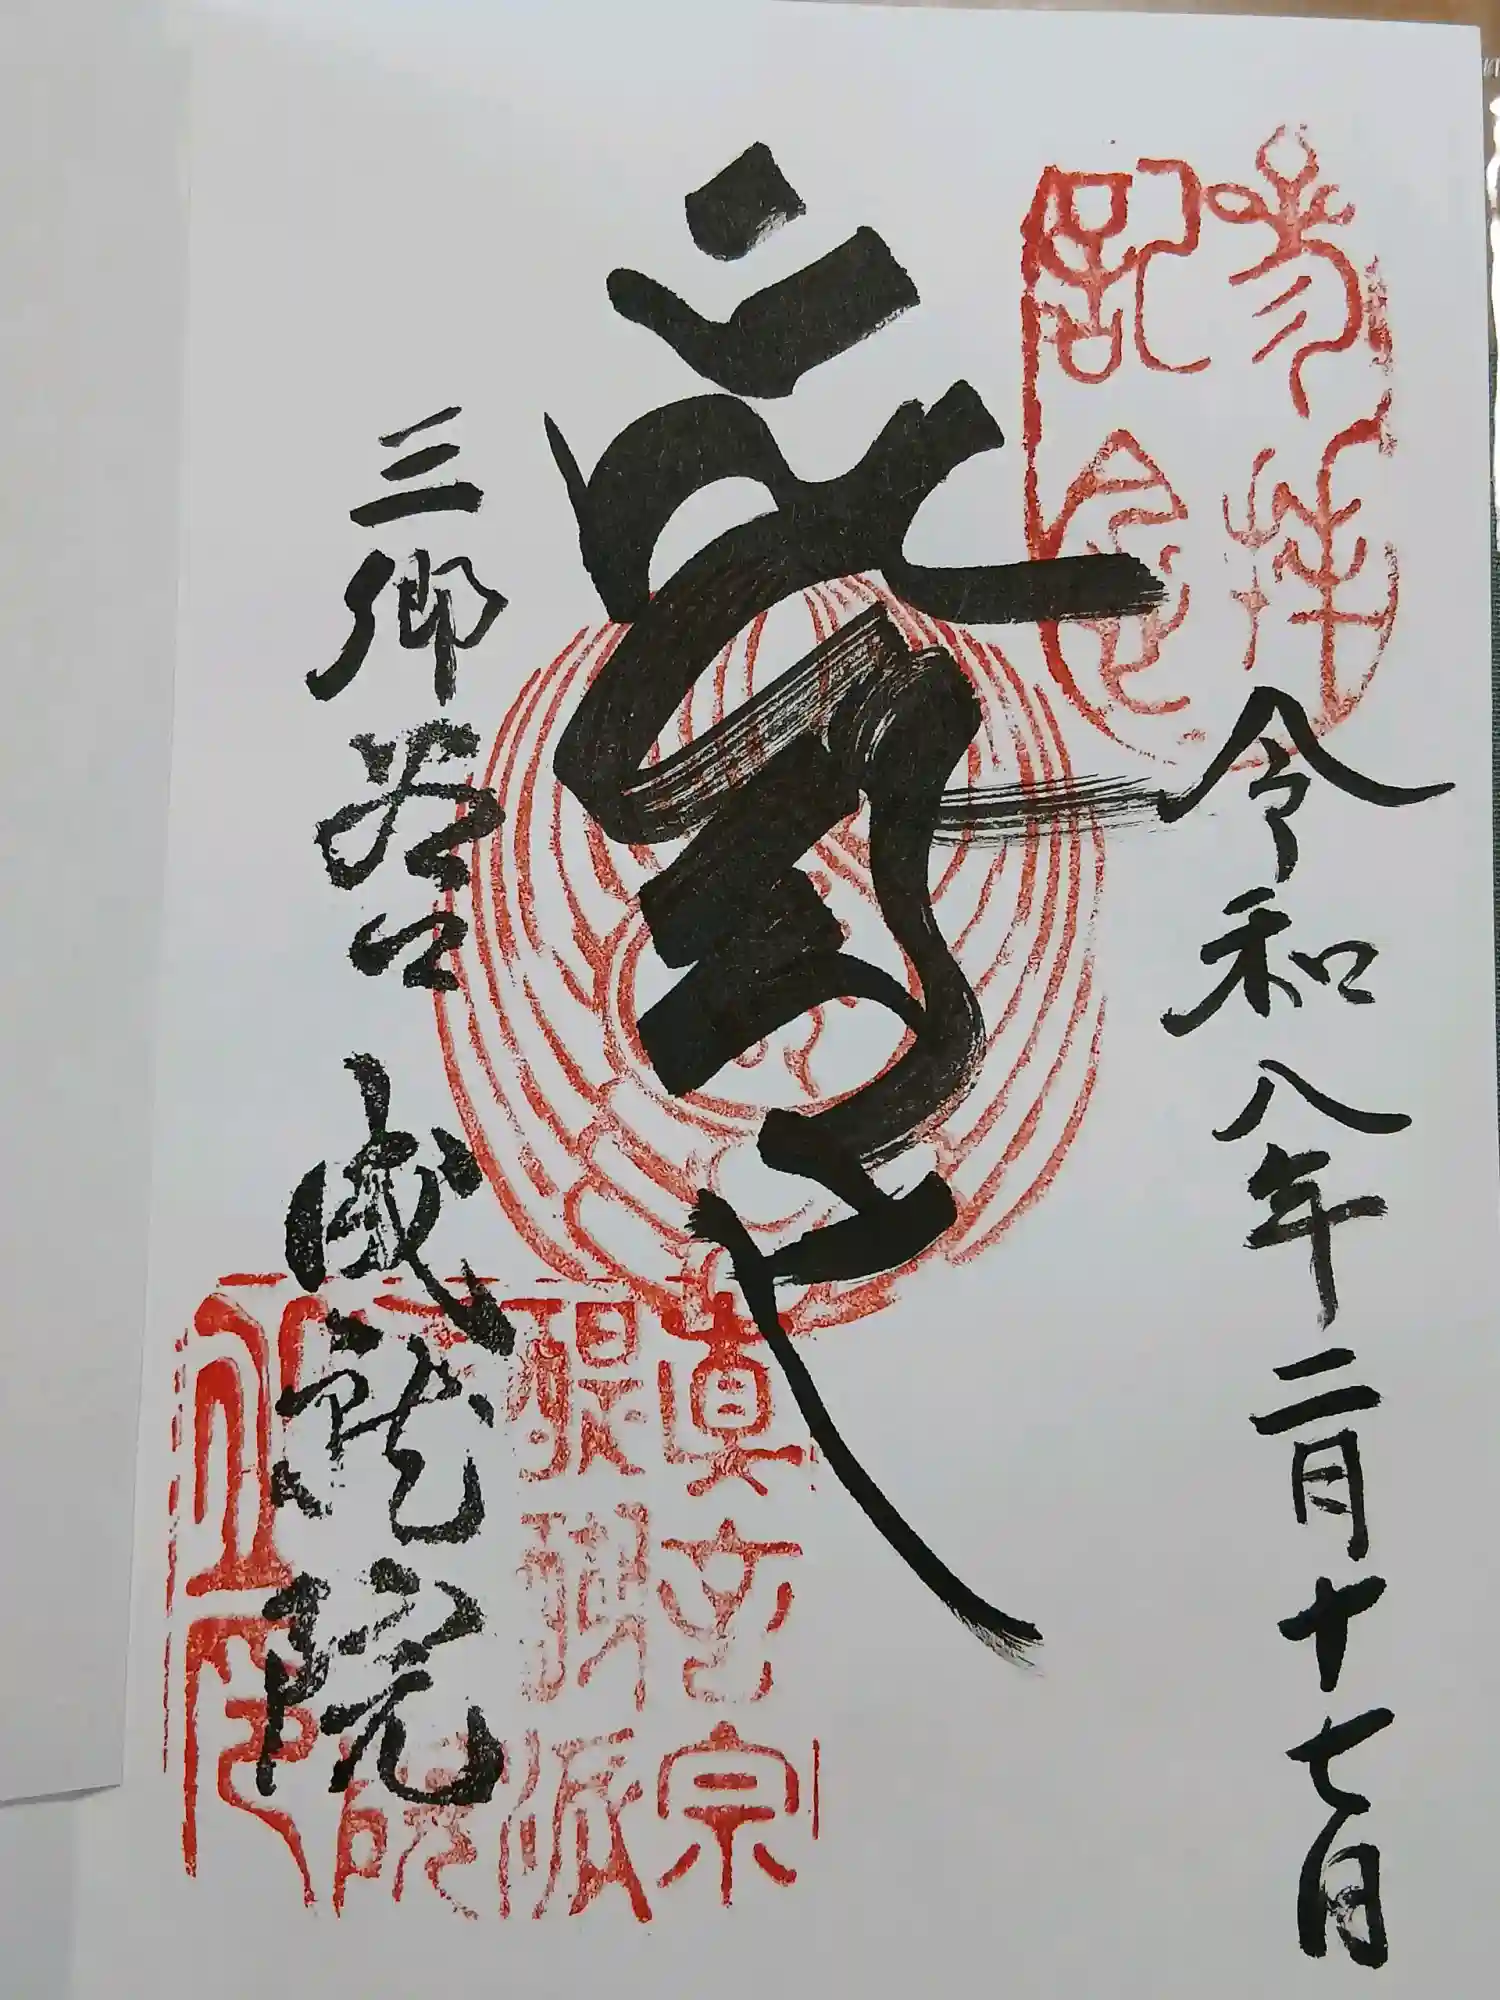 参拝
記念
令和八年二月十七日
三郷谷口 成就院
真言宗
醍醐派